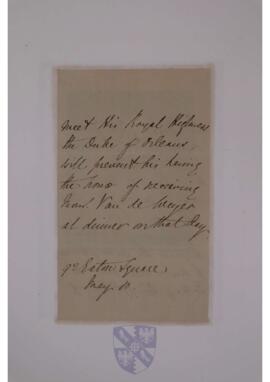 meet His Royal Highness
the Duke of Orleans,
will prevent his having
the honor of receiving
Van de Weyer
at dinner on that day.
Eaton Square,
May